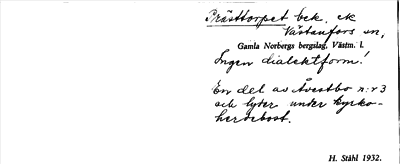 Prästtorpet bek. ek
Västanfors sn,
Gamla Norbergs bergslag, Västm. l.
Ingen dialektform!
En del av Åvestbo n:r 3
och lyder under Kyrko-
herdebost.
H. Ståhl 1932.